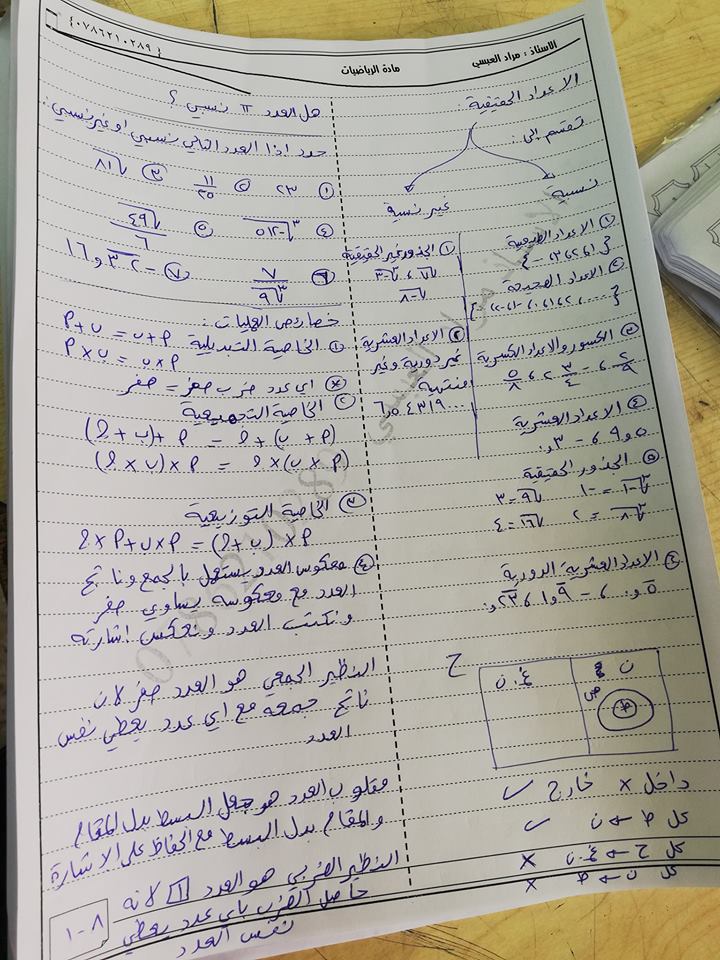 الاستاذ : مراد العبسي
مادة الرياضيات
{٠٧٨٦٢١٠٢٨٩}
الاعداد الحقيقية :
تقسم الى :
نسبية
غير نسبية
١ الاعداد الطبيعية
٢ الاعداد الصحيحة
٣ الكسور والاعداد الكسرية
٤ الاعداد العشرية
٥ الجذور الحقيقية
∛-١ = -١
√٩ = ٣
∛٨ = ٢
√١٦ = ٤
٦ الاعداد العشرية الدورية
١ الجذور غير الحقيقية
٢ الاعداد العشرية
غير دورية وغير
منتهية
ح
ن
غ.ن
ص
ط
داخل × خارج ✓
كل ط ← ن ✓
كل ح ← غ.ن ×
كل ن ← ط ×
هل العدد π نسبي ؟
حدد اذا العدد التالي نسبي او غير نسبي .
١ ٢٣
٢ ١١/٢٥
٣ √٨١
٤ ∛-٥١٢
٥ √٤٩/٦
٦ ٧/∛٩
خصائص العمليات :
١ الخاصية التبديلية P + ب = ب + P
P × ب = ب × P
* اي عدد ضرب صفر = صفر
٢ الخاصية التجميعية
(P + ب) + ج = P + (ب + ج)
(P × ب) × ج = P × (ب × ج)
٣ الخاصية التوزيعية
P × (ب + ج) = P × ب + P × ج
٤ معكوس العدد يستعمل بالجمع وناتج
العدد مع معكوسه يساوي صفر
ونكتب العدد ونعكس اشارته
النظير الجمعي هو العدد صفر لان
ناتج جمعه مع اي عدد يعطي نفس
العدد
مقلوب العدد هو جعل البسط بدل المقام
والمقام بدل البسط مع الحفاظ على الاشارة
النظير الضربي هو العدد ١ لانه
حاصل الضرب باي عدد يعطي
نفس العدد
٨ - ١